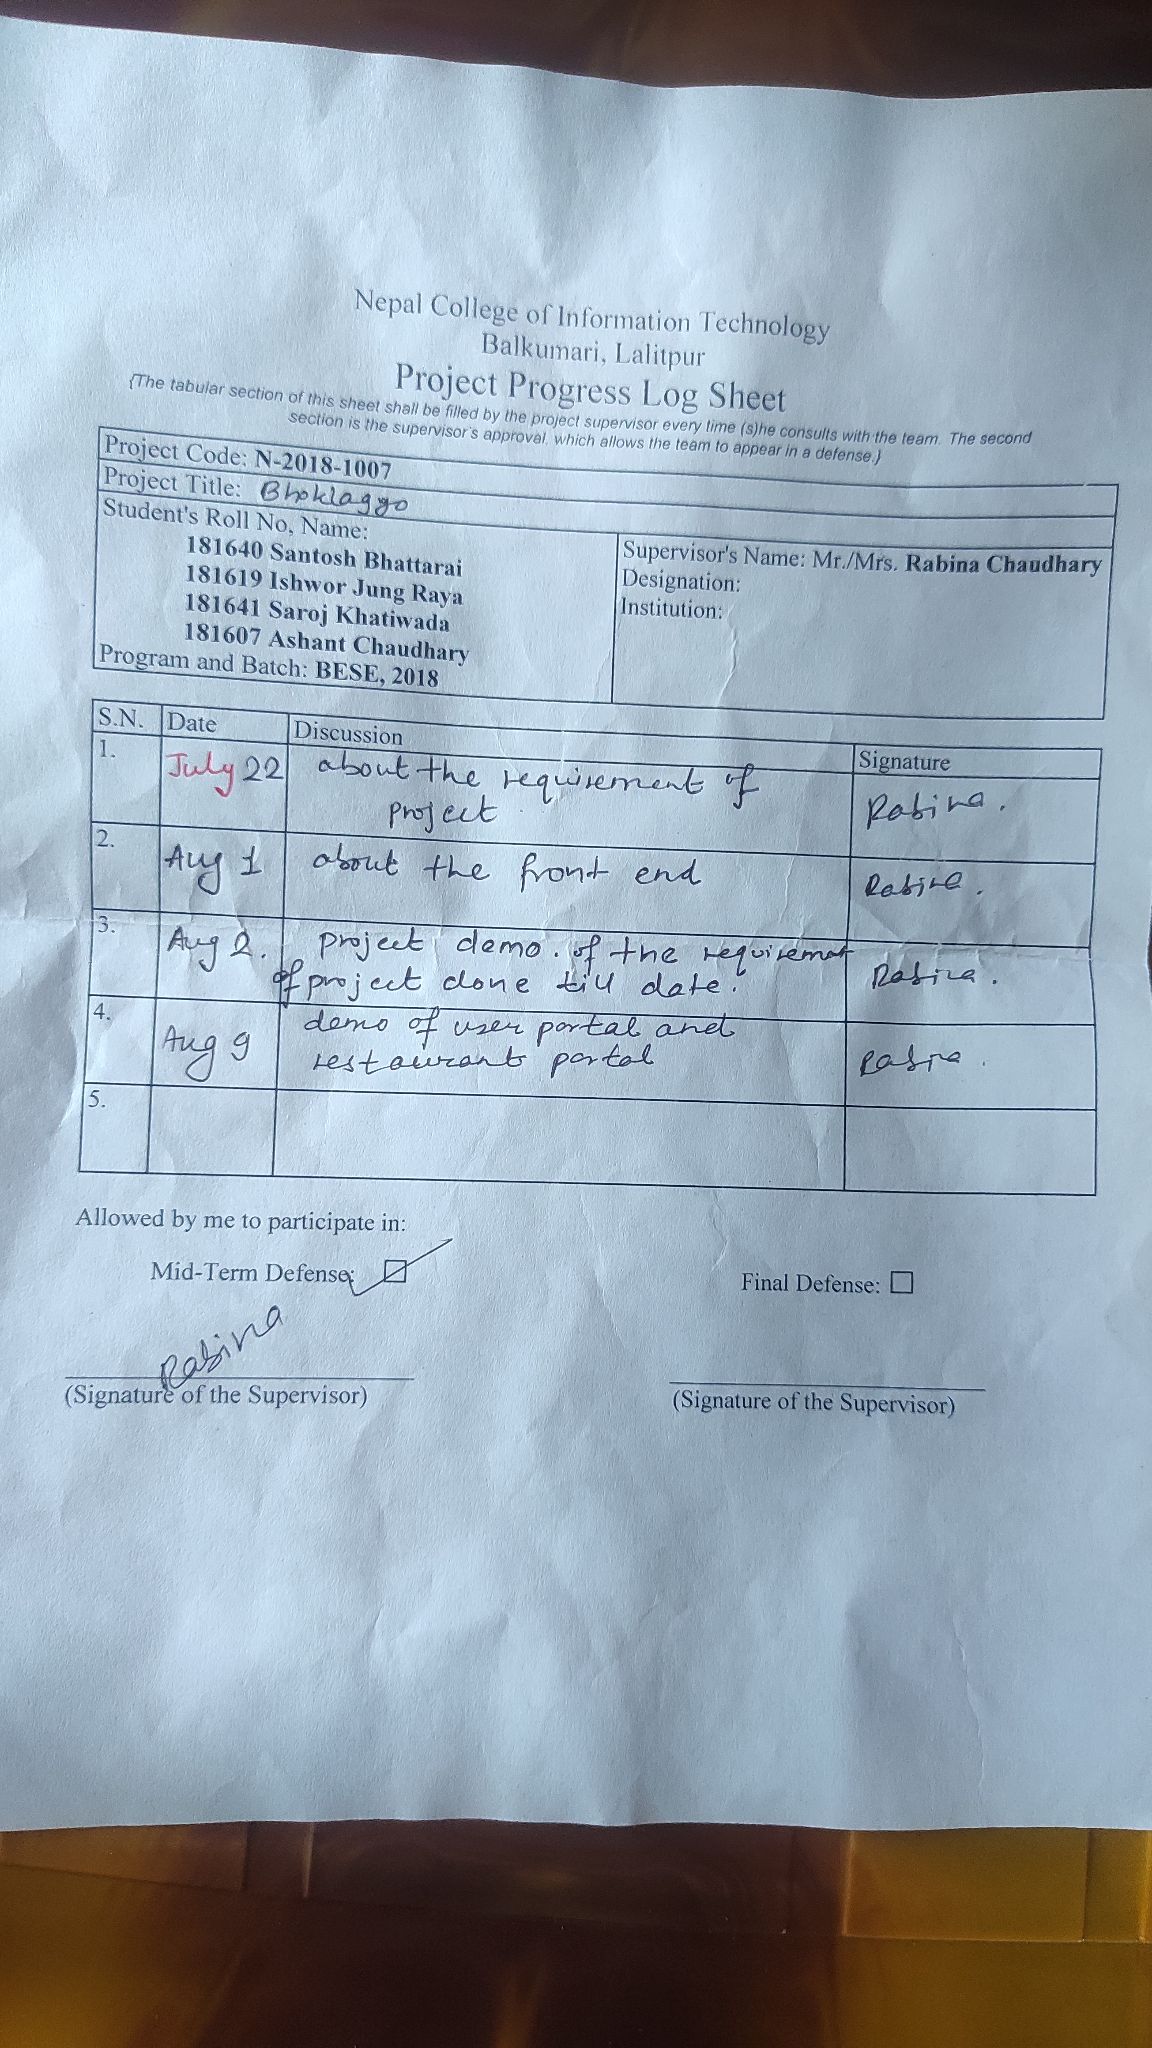 Nepal College of Information Technology
Balkumari, Lalitpur
Project Progress Log Sheet
{The tabular section of this sheet shall be filled by the project supervisor every time (s)he consults with the team. The second
section is the supervisor's approval, which allows the team to appear in a defense.}
Project Code: N-2018-1007
Project Title: Bhoklaggo
Student's Roll No, Name:
181640 Santosh Bhattarai
181619 Ishwor Jung Raya
181641 Saroj Khatiwada
181607 Ashant Chaudhary
Program and Batch: BESE, 2018
Supervisor's Name: Mr./Mrs. Rabina Chaudhary
Designation:
Institution:
S.N. Date Discussion Signature
1. July 22 about the requirement of
project Rabina.
2. Aug 1 about the front end Rabina.
3. Aug 2. project demo. of the requiremet
of project done till date. Rabina.
4. Aug 9 demo of user portal and
restaurant portal Rabina.
5.
Allowed by me to participate in:
Mid-Term Defense:
Final Defense:
Rabina
(Signature of the Supervisor)
(Signature of the Supervisor)